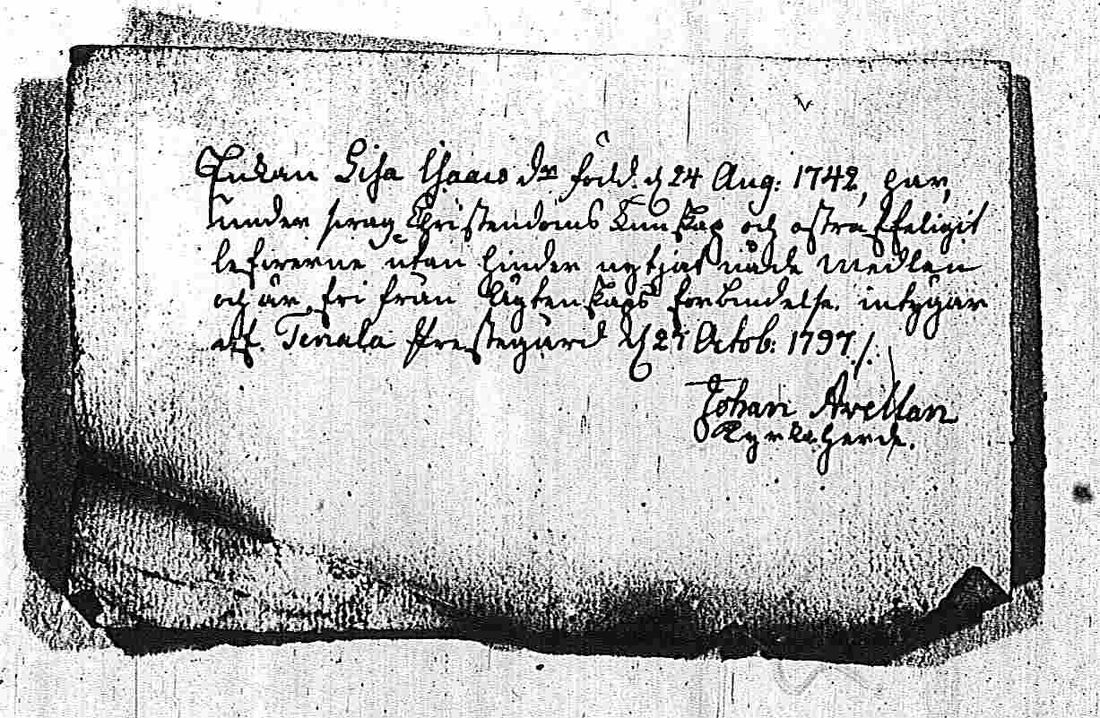 Enkan Lisa Isaacs dr född d 24 Aug: 1742, har,
under svag Christendoms Kunskap och ostraffeligit
lefverne utan hinder nytjat nåde medlen
och är fri från Ägtenskaps förbindelse. intygar
af Tenala Prestegård d 27 Octob: 1797./.
Johan Avellan
Kyrkoherde.